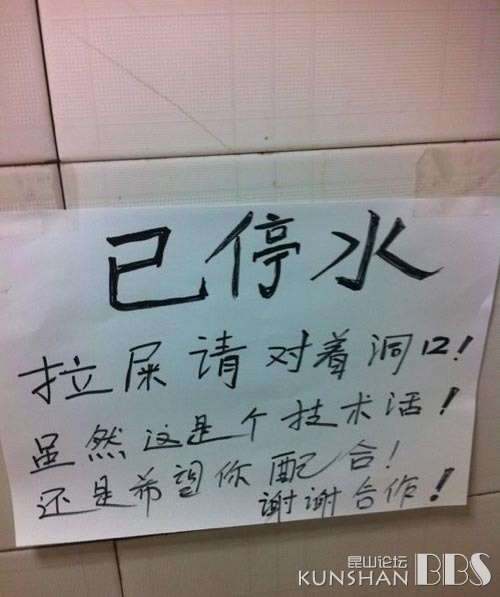 已停水
拉屎请对着洞口!
虽然这是个技术活!
还是希望你配合!
谢谢合作!
昆山论坛
KUNSHAN BBS